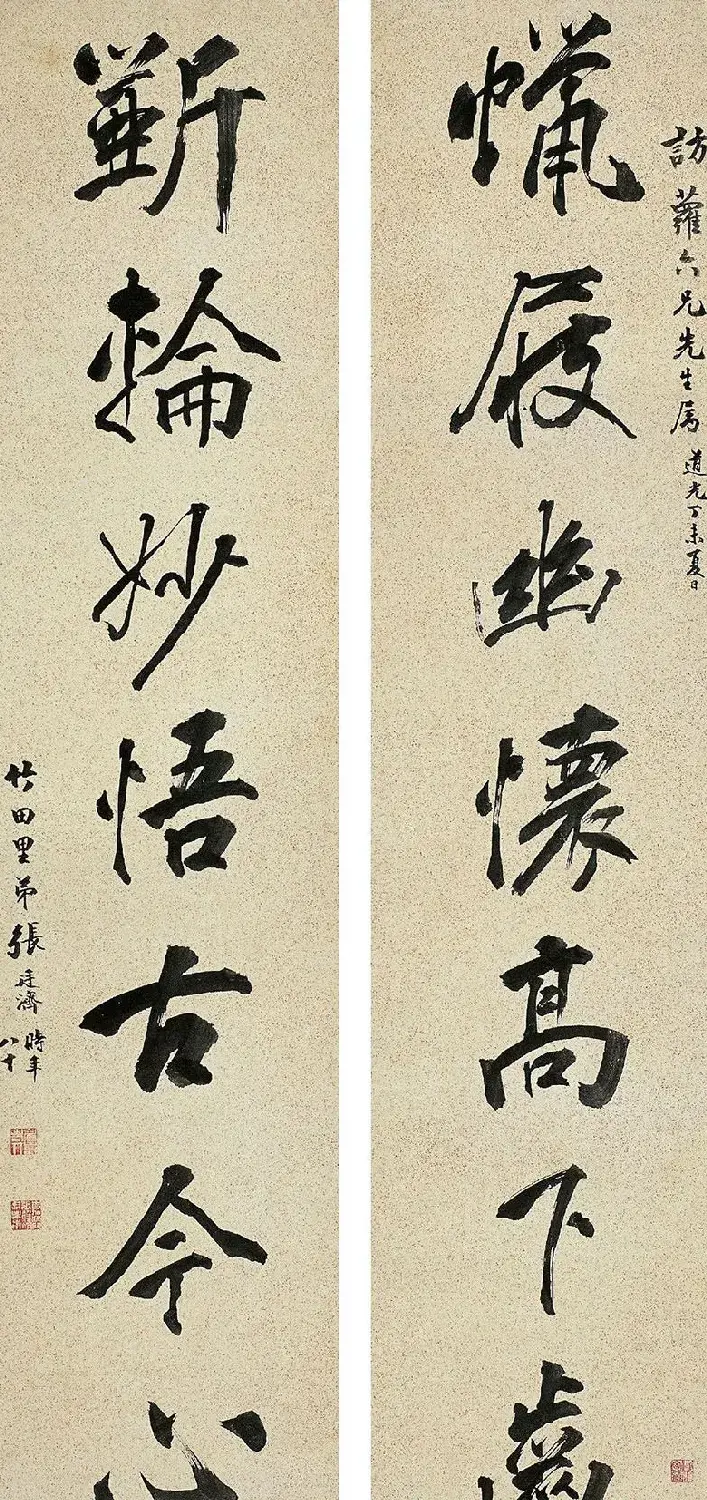 訪蘿六兄先生属 道光丁未夏日
蜡屐幽懷高下齒
斲輪妙悟古今心
竹田里弟張廷濟 時年八十